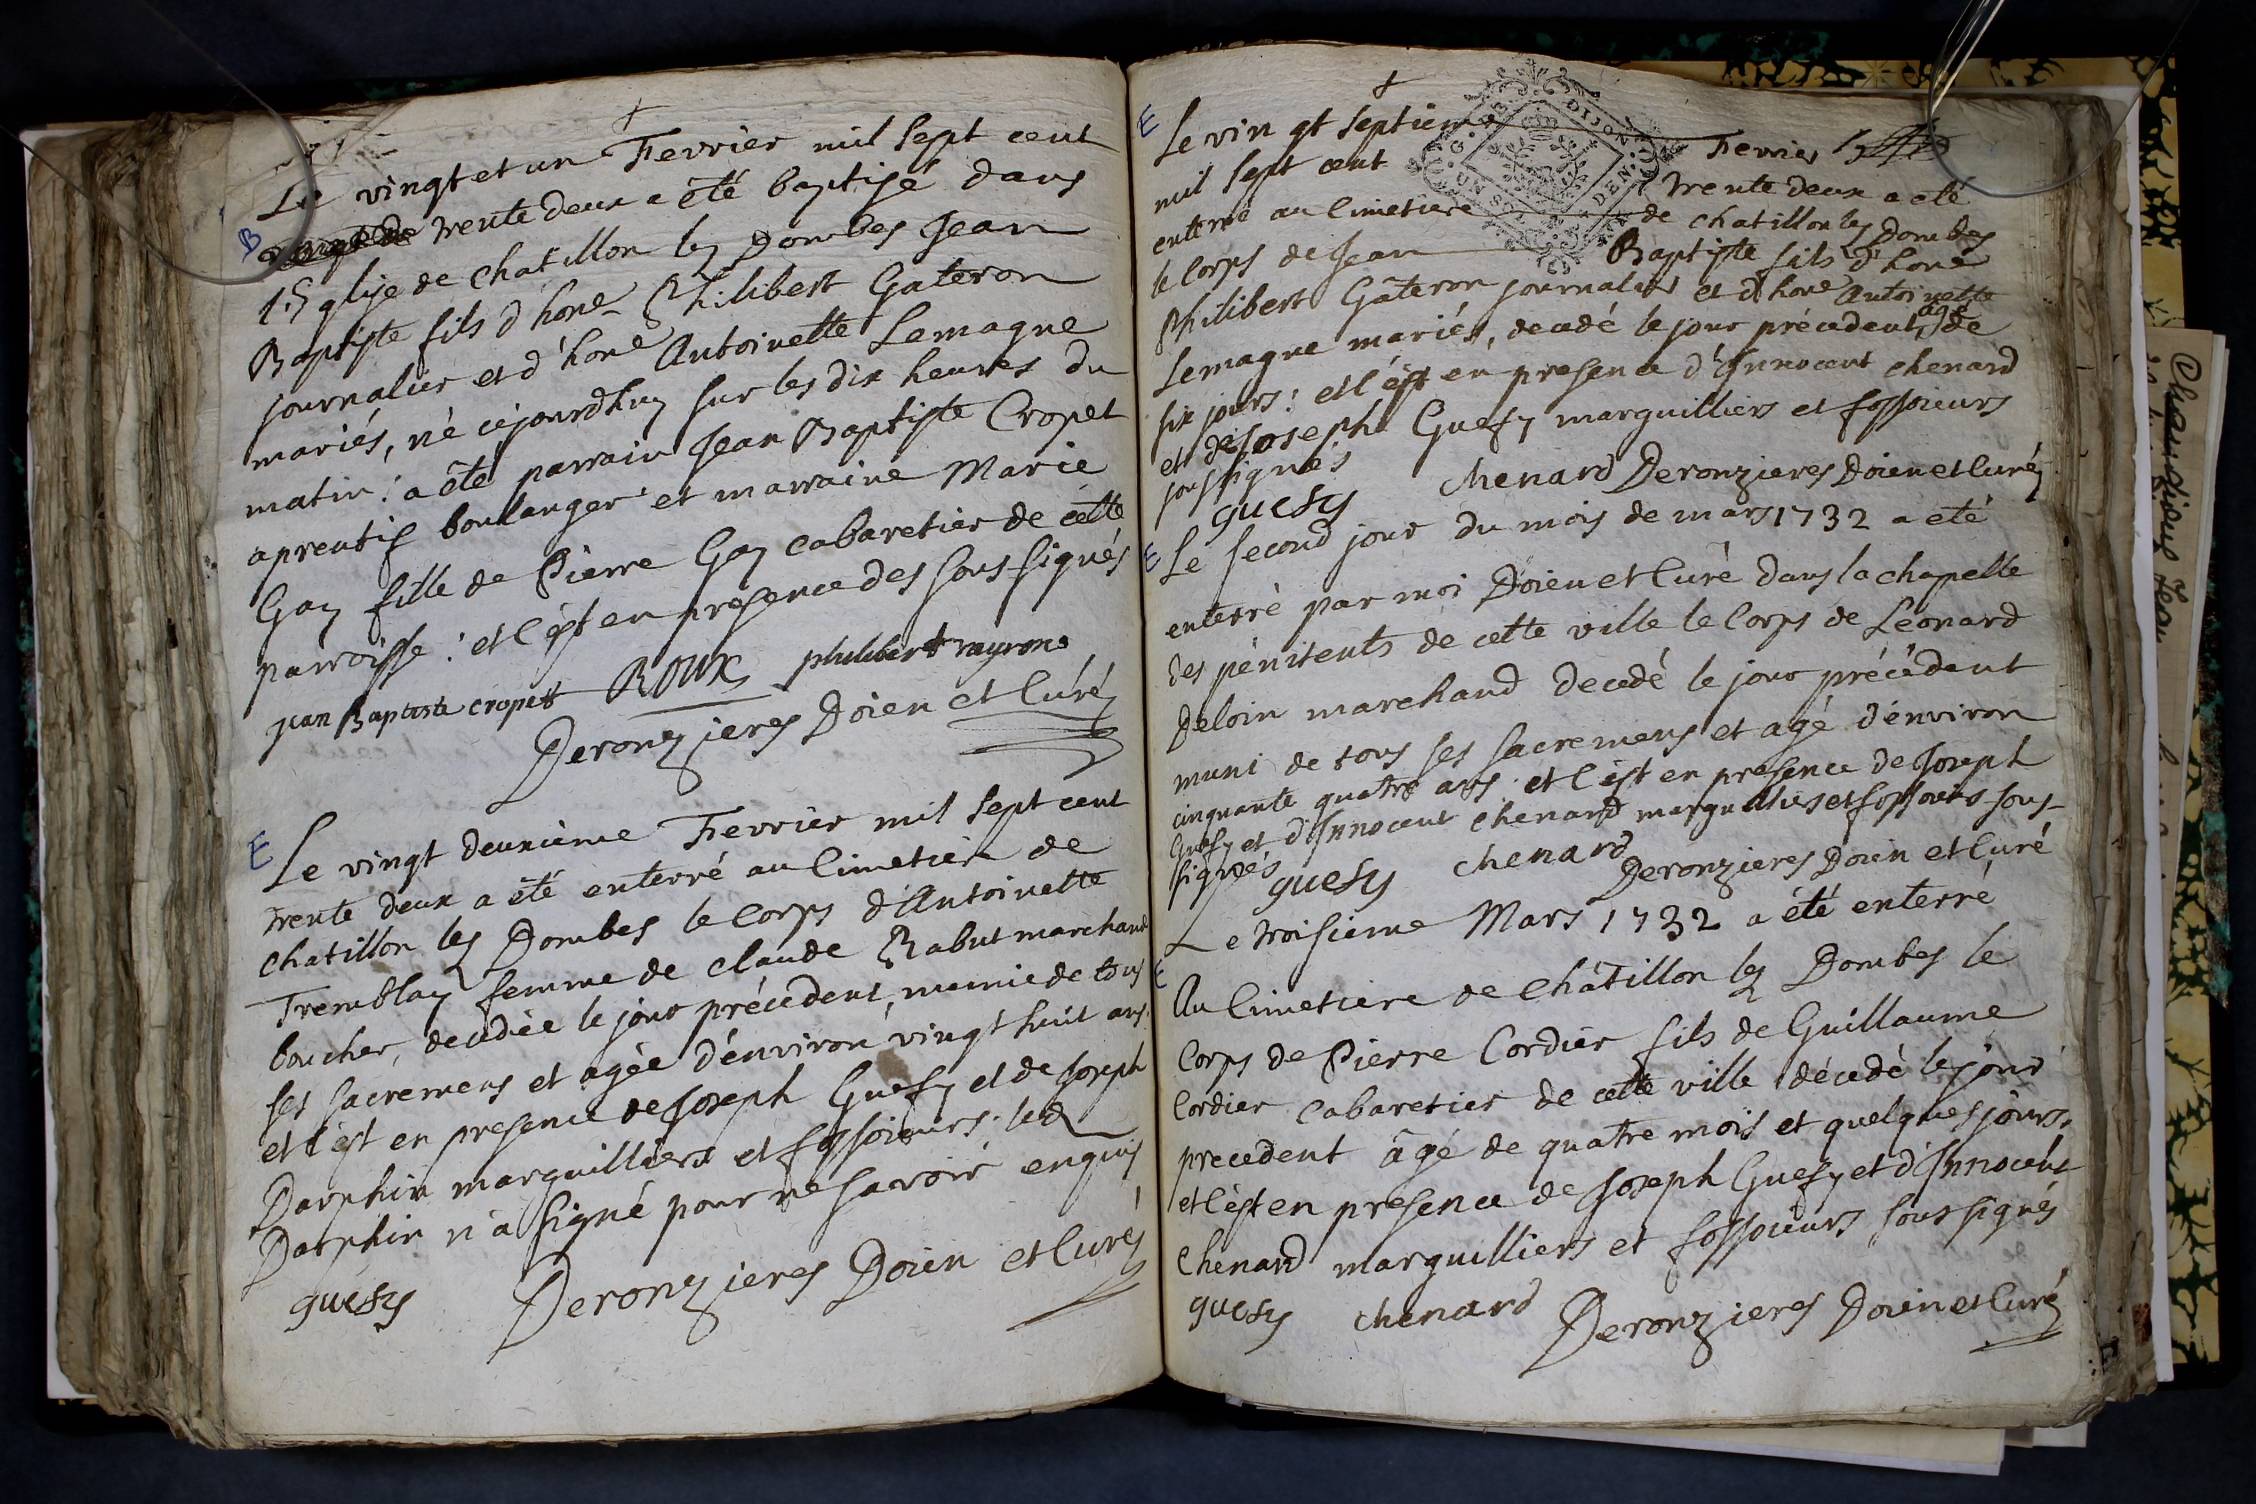 +
B
Le vingt et un Fevrier mil sept cent
trente deux a été baptisé dans
l'Eglise de chatillon lez Dombes Jean
Baptiste fils d'hone Philibert Gateron
journalier et d'hone Antoinette Lemagne
mariés, né cejourdhuy sur les dix heures du
matin : a été parrain Jean Baptiste Cropet
aprentif boulanger et marraine Marie
Gay fille de Pierre Gay cabaretier de cette
parroisse : et c'est en presence des sous signés
jean Baptiste cropet ROUX philibert
Deronzieres Doien et Curé
E
Le vingt deuxieme Fevrier mil sept cent
trente deux a été enterré au Cimetiere de
chatillon lez Dombes le corps d'Antoinette
Tremblay femme de claude Rabut marchand
boucher, decedée le jour précedent, munie de tous
ses sacremens et agée d'environ vingt huit ans.
et c'est en presence de Joseph Guesy et de Joseph
Darphin marguilliers et fossoieurs. led
Darphin n'a signé pour ne savoir enquis
guesy Deronzieres Doien et Curé
+
G. DE DIJON
UN SOL DEN.
E
Le vingt septieme Fevrier
mil sept cent trente deux a eté
enterré au Cimetiere de chatillon lez Dombes
le corps de Jean Baptiste fils d'hone
Philibert Gateron journalier et d'hone Antoinette
Lemagne mariés, decedé le jour précedent, agé de
six jours : et c'est en presence d'Innocent chenard
et de Joseph Guesy marguilliers et fossoieurs
soussignés
guesy chenard Deronzieres Doien et Curé
E
Le second jour du mois de mars 1732 a eté
enterré par moi Doien et Curé dans la chapelle
des pénitents de cette ville le Corps de Léonard
Deloin marchand decedé le jour précédent
muni de tous ses sacremens et agé d'environ
cinquante quatre ans : et c'est en presence de Joseph
Guesy et d'Innocent chenard marguilliers et fossoieurs sous-
signés
guesy chenard Deronzieres Doien et Curé
E
Le troisieme Mars 1732 a été enterré
Au Cimetiere de Châtillon lez Dombes le
Corps de Pierre Cordier fils de Guillaume
Cordier Cabaretier de cette ville décedé le jour
precedent âgé de quatre mois et quelques jours.
et c'est en presence de Joseph Guesy et d'Innocent
Chenard marguilliers et fossoieurs sous signés
guesy chenard Deronzieres Doien et Curé